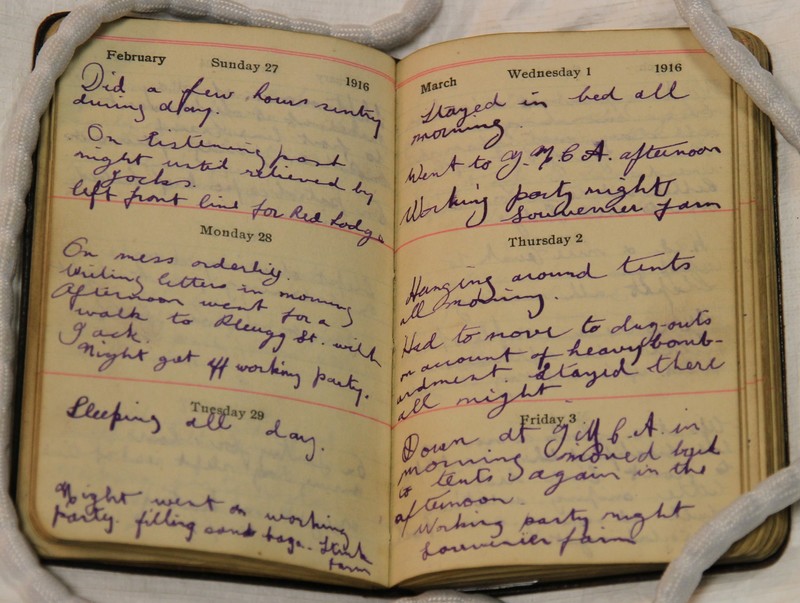 February Sunday 27 1916
Did a few hours sentry
during day.
On listening post
night until relieved by
Jocks.
left front line for Red Lodge
Monday 28
On mess orderly.
Writing letters in morning
Afternoon went for a
walk to Pleugg St. with
Jack.
Night got off working party.
Tuesday 29
Sleeping all day.
Night went on working
party. filling sand bags.
farm
March Wednesday 1 1916
Stayed in bed all
morning.
Went to Y.M.C.A. afternoon
Working party night
Souvenier farm
Thursday 2
Hanging around tents
all morning.
Had to move to dug-outs
on account of heavy bomb-
ardment. Stayed there
all night.
Friday 3
Down at Y.M.C.A. in
morning moved back
to tents again in the
afternoon.
Working party night
Souvenier farm